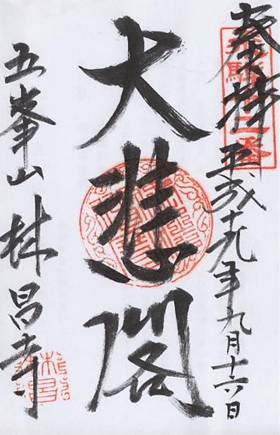 奉拝 平成十九年九月十六日
大悲閣
五峯山 林昌寺